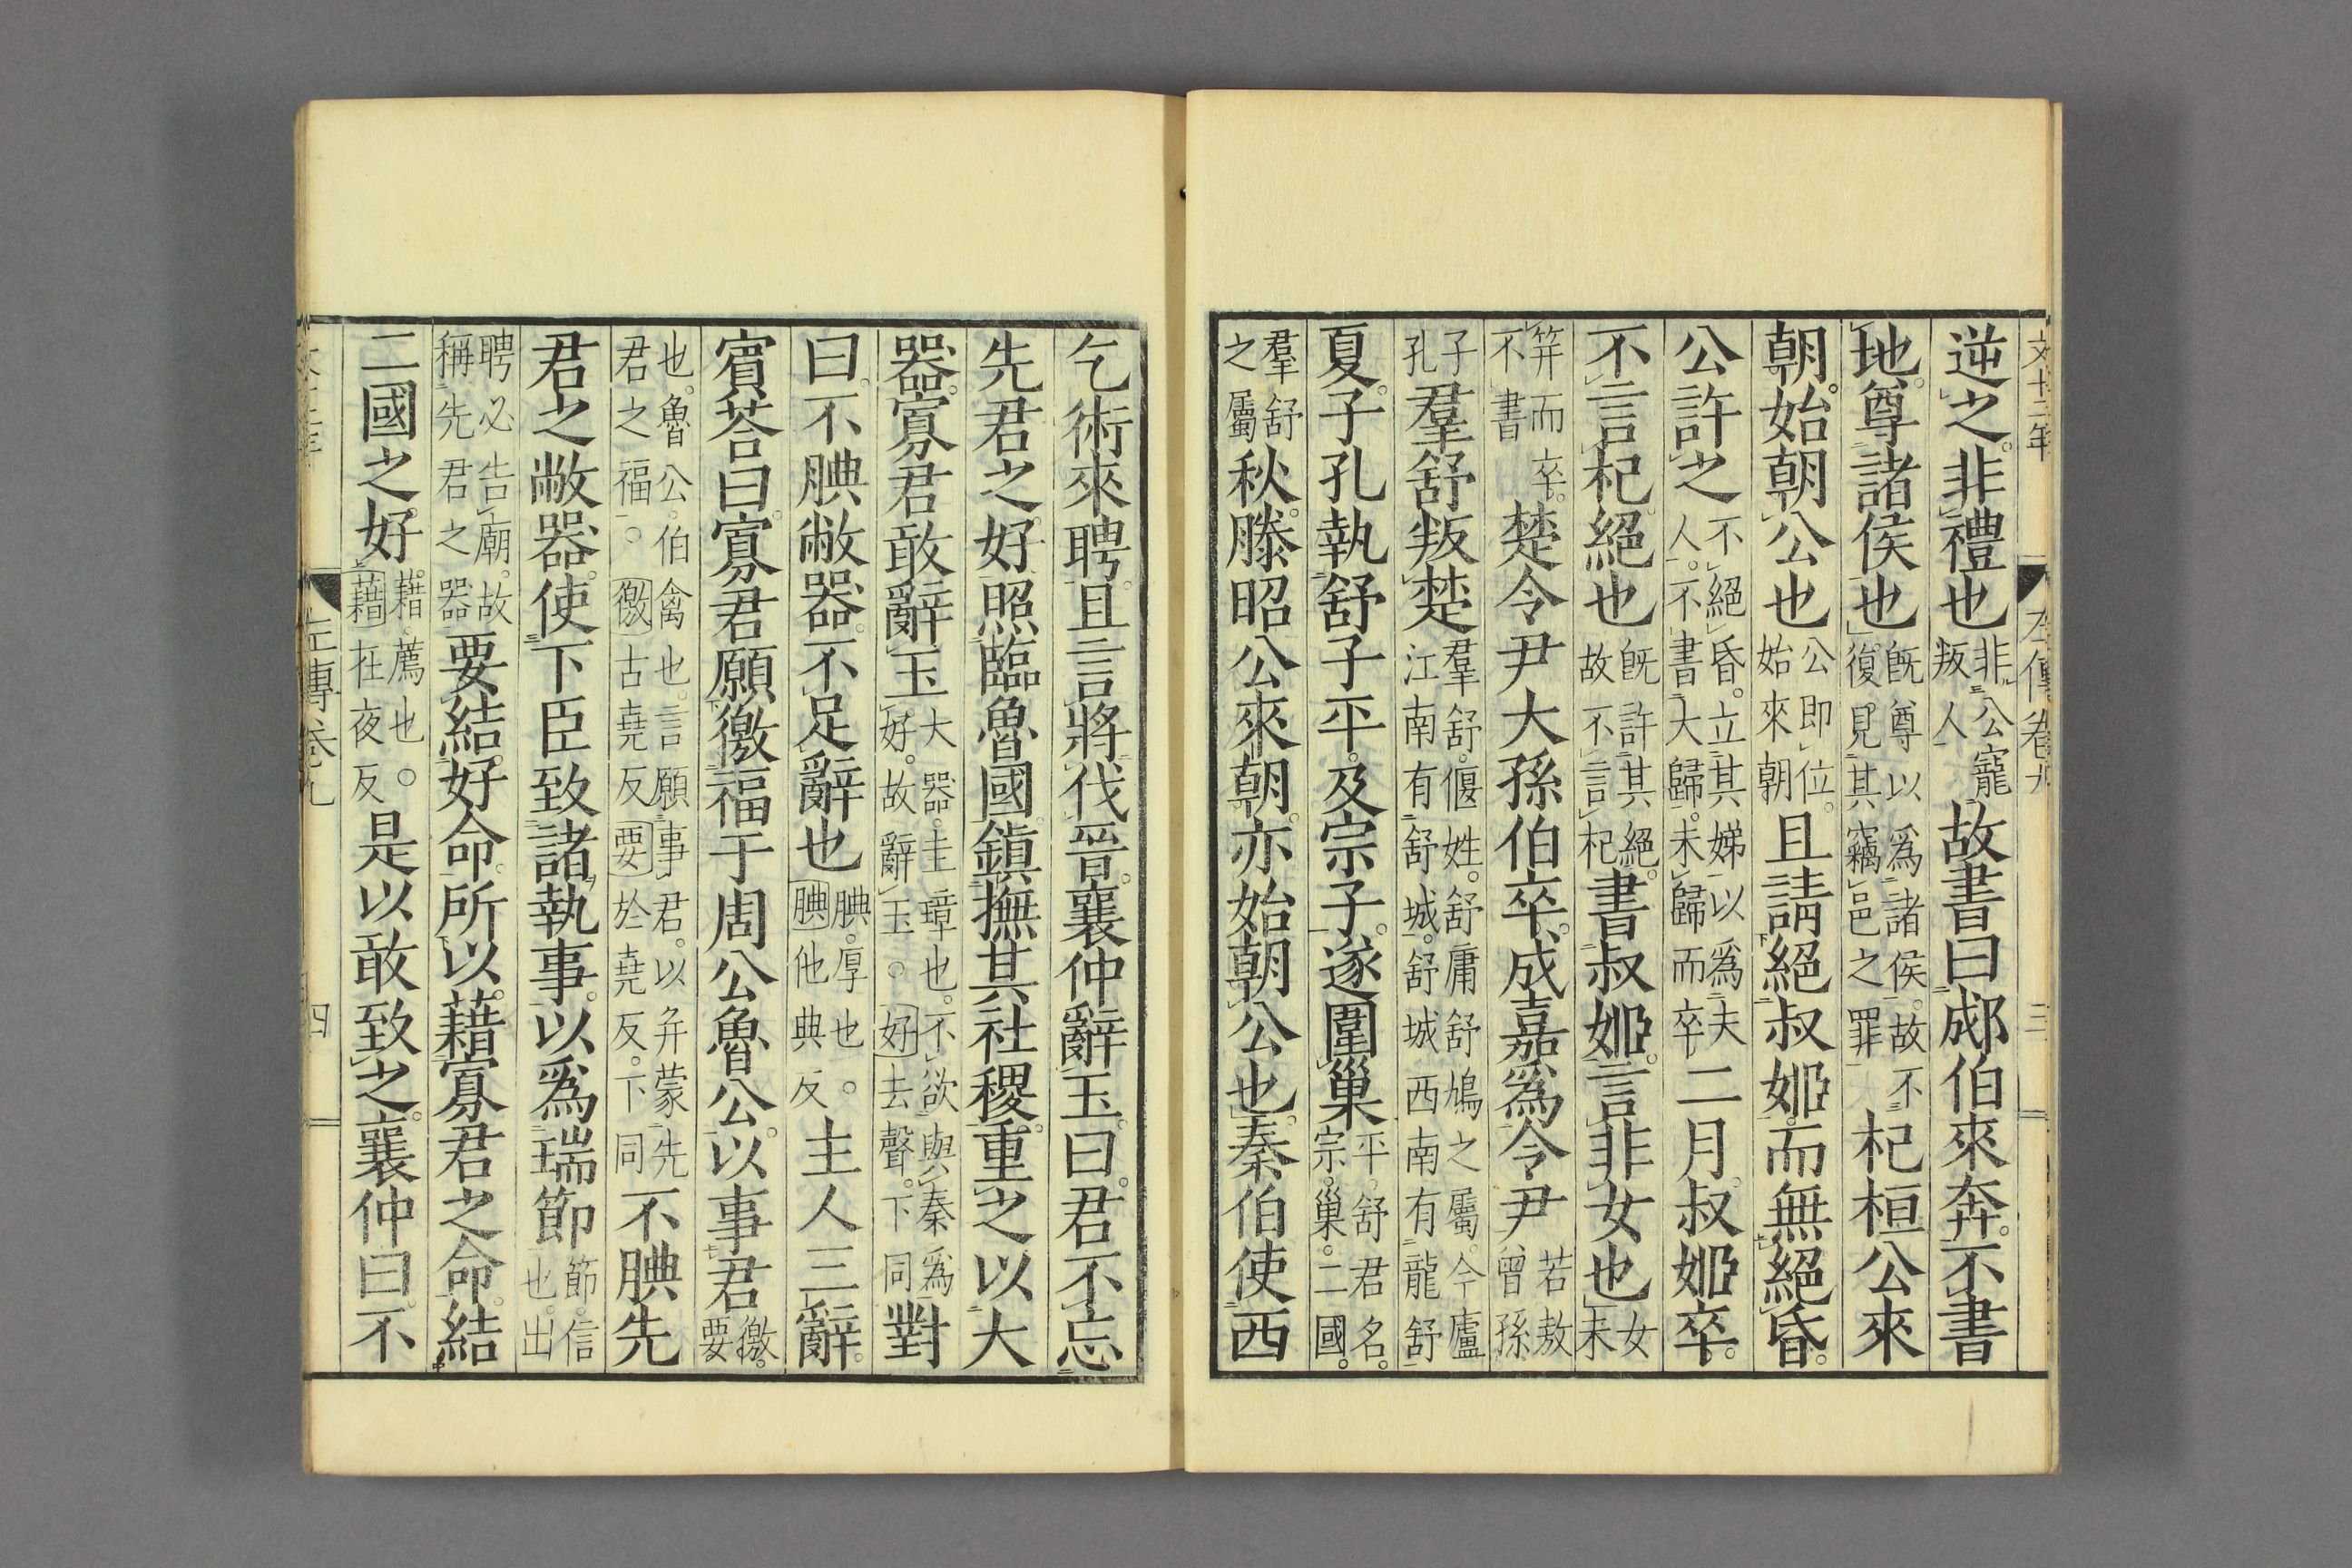 文十二年 左傳卷九 三
逆之。非禮也非公寵叛人故書曰郕伯來奔。不書
地。尊諸侯也既尊以爲諸侯。故不復見其竊邑之罪杞桓公來
朝。始朝公也公即位。始來朝且請絕叔姬。而無絕昏。
公許之不絕昏。立其娣以爲夫人。不書大歸。未歸而卒二月。叔姬卒。
不言杞。絕也既許其絕。故不言杞書叔姬。言非女也女未
笄而卒。不書楚令尹大孫伯卒。成嘉爲令尹若敖曾孫
子孔羣舒叛楚羣舒。偃姓。舒庸舒鳩之屬。今廬江南有舒城。舒城西南有龍舒
夏。子孔執舒子平。及宗子。遂圍巢平。舒君名。宗。巢。二國。
羣舒之屬秋。滕昭公來朝。亦始朝公也。秦伯使西
乞術來聘。且言將伐晉。襄仲辭玉。曰。君不忘
先君之好。照臨魯國。鎮撫其社稷。重之以大
器。寡君敢辭玉大器。圭璋也。不欲與秦爲好。故辭玉。○好去聲。下同對
曰。不腆敝器。不足辭也腆。厚也。○腆他典反主人三辭。
賓荅曰。寡君願徼福于周公魯公。以事君徼。要
也。魯公。伯禽也。言願事君。以并蒙先君之福。○徼古堯反要於堯反。下同不腆先
君之敝器。使下臣致諸執事。以爲瑞節節。信也。出
聘必告廟。故稱先君之器要結好命。所以藉寡君之命。結
二國之好。藉。薦也。○藉在夜反是以敢致之。襄仲曰。不
左傳卷九 四